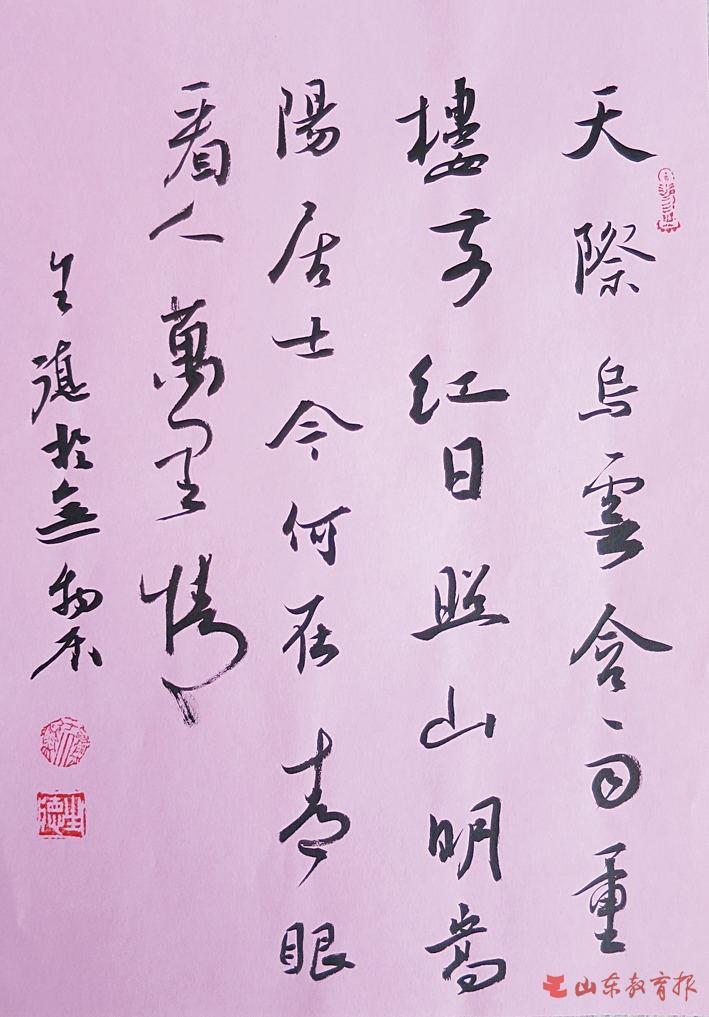 天際烏雲含雨重
樓前紅日照山明嵩
陽居士今何在青眼
看人萬里情
生德於無物居
生德
山东教育报